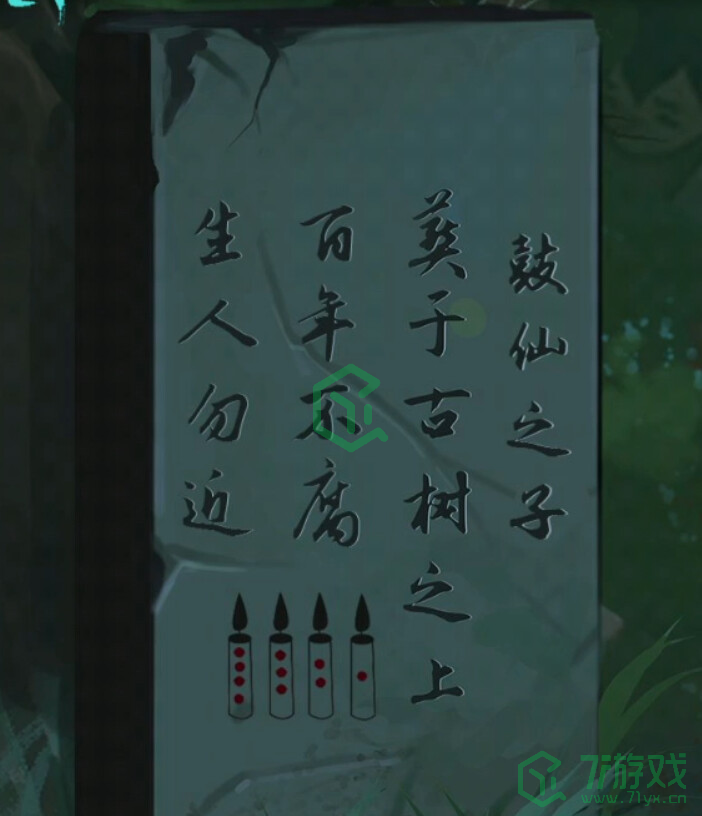 鼓仙之子
葬于古树之上
百年不腐
生人勿近
7i游戏
www.71yx.cn